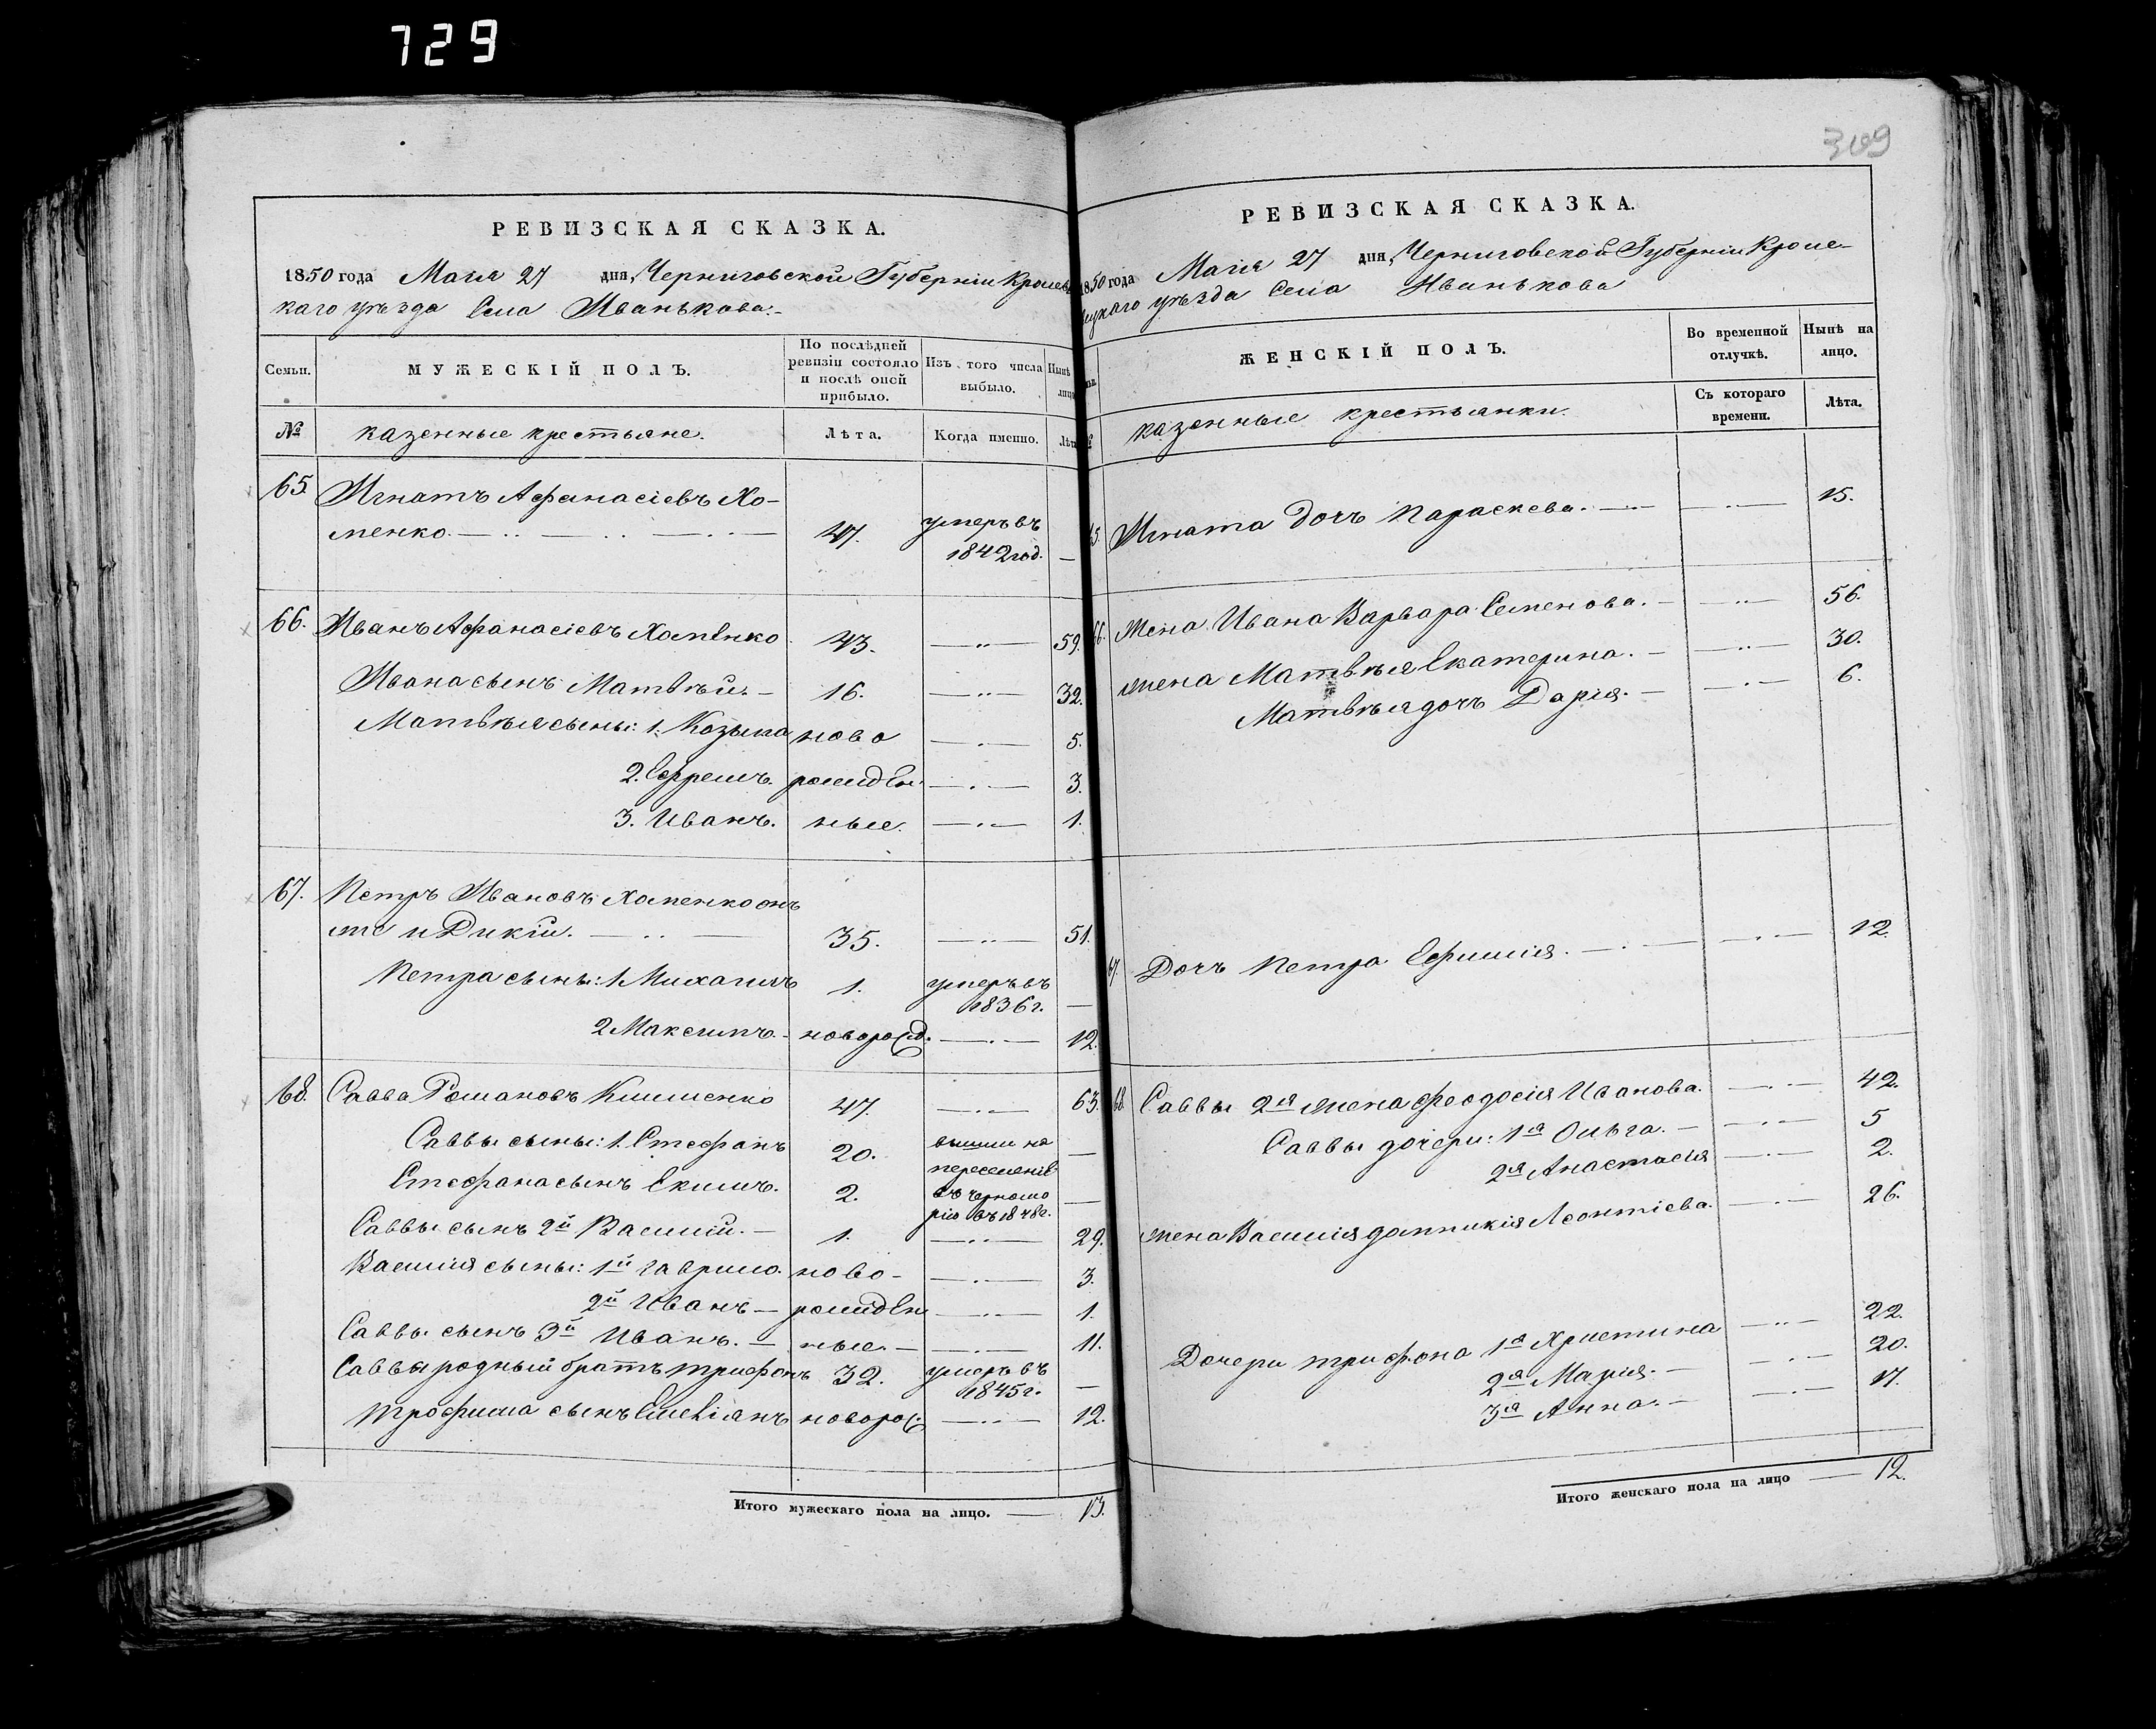 729
РЕВИЗСКАЯ СКАЗКА.
1850 года Маія 27 дня, Черниговской Губерніи Кролев
каго уѣзда Села Иванькова.
Семьи.
МУЖЕСКІЙ ПОЛЪ.
По послѣдней
ревизіи состояло
и послѣ оной
прибыло.
Изъ того числа
выбыло.
Нынѣ
лицо
№
казенные крестьяне.
Лѣта.
Когда именно.
Лѣта
65. Игнатъ Афанасіевъ Хо-
менко. 47. умеръ въ
1842 год. —
66. Иванъ Афанасіевъ Хоменко 43. — 59.
Ивана сынъ Матвѣй. 16. — 32.
Матвѣя сыны: 1. Козьма ново — 5.
2. Ефремъ. рожден — 3.
3. Иванъ. ные. — 1.
67. Петръ Ивановъ Хоменко онъ
же и Дикій. 35. — 51.
Петра сыны: 1. Михаилъ 1. умеръ въ
1836 г. —
2 Максимъ. новорожд. — 12.
68. Савва Романовъ Клименко 47. — 63.
Саввы сыны: 1. Стефанъ 20. вышли на —
переселеніе
Стефана сынъ Екимъ. 2. въ черномо —
рію въ 1848 г.
Саввы сынъ 2й Василій. 1. — 29.
Василія сыны: 1й Гаврило. ново- — 3.
2й Иванъ рожден — 1.
Саввы сынъ 3й Иванъ. ные. — 11.
Саввы родный братъ Трифонъ 32. умеръ въ
1845 г. —
Трофима сынъ Емеліянъ новорож. — 12.
Итого мужескаго пола на лицо. — 13.
309
РЕВИЗСКАЯ СКАЗКА.
1850 года Маія 27 дня, Черниговской Губерніи Кроле-
вецкаго уѣзда Села Иванькова
ЖЕНСКІЙ ПОЛЪ.
Во временной
отлучкѣ.
Нынѣ на
лицо.
казенные крестьянки.
Съ котораго
времени.
Лѣта.
65. Игната дочь Параскева. — 15.
66. Жена Ивана Варвара Семенова. — 56.
жена Матвѣя Екатерина. — 30.
Матвѣя дочь Дарія. — 6.
67. Дочь Петра Ефимія. — 12.
68. Саввы 2я жена Феодосія Иванова. — 42.
Саввы дочери: 1я Ольга. — 5
2я Анастасія — 2.
жена Василія Домникія Леонтіева. — 26.
Дочери Трифона 1я Христина — 22.
2я Марія. — 20.
3я Анна. — 17.
Итого женскаго пола на лицо — 12.